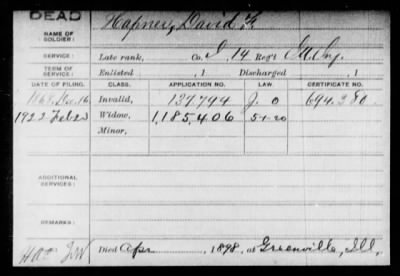 DEAD
NAME OF SOLDIER: Hapner, David F.
SERVICE: Late rank, Co. I, 14 Reg't Ill. Inf.
TERM OF SERVICE: Enlisted , 1 Discharged , 1
DATE OF FILING. CLASS. APPLICATION NO. LAW. CERTIFICATE NO.
1868. Dec. 16 Invalid, 137.794 J. O 694.280
1922 Feb 23 Widow, 1,185,406 5-1-20
Minor,
ADDITIONAL SERVICES:
REMARKS:
Died Apr , 1898, at Greenville, Ill.